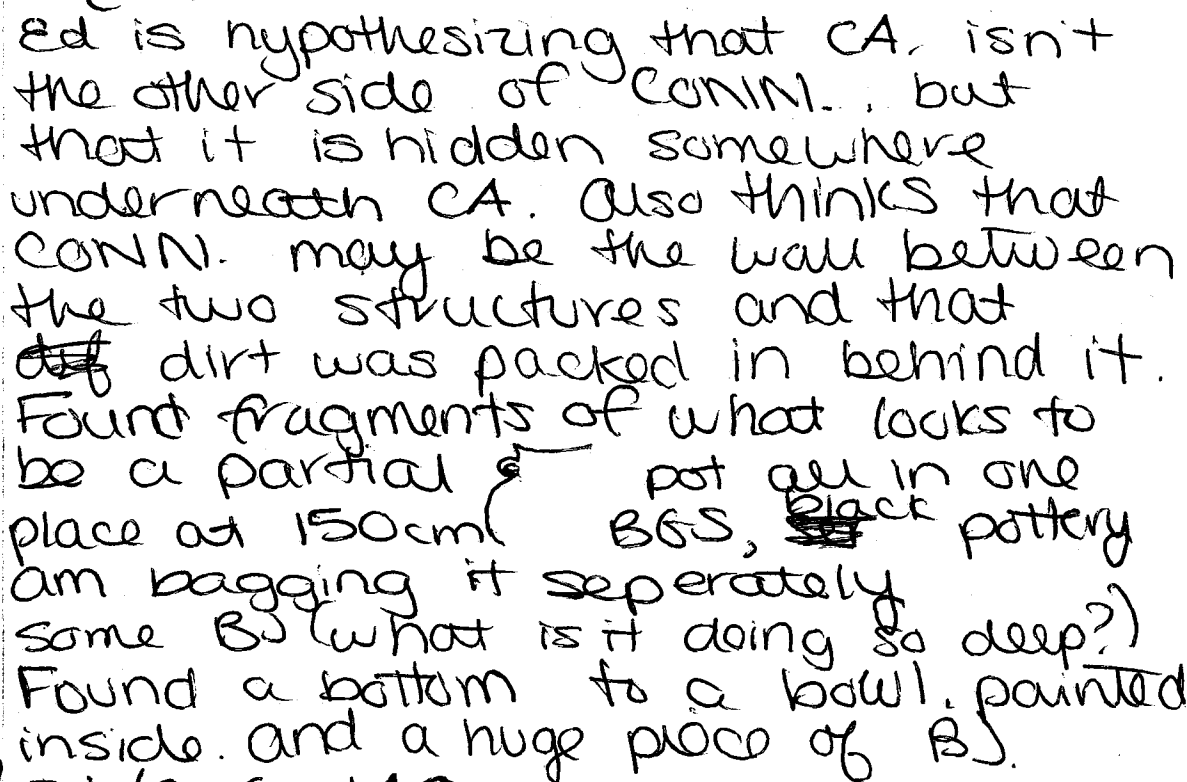 Ed is hypothesizing that CA. isn't
the other side of CONN.. but
that it is hidden somewhere
underneath CA. Also thinks that
CONN. may be the wall between
the two structures and that
dirt was packed in behind it.
Found fragments of what looks to
be a partial pot all in one
place at 150cm BGS, black pottery
am bagging it seperately
some BJ (what is it doing so deep?)
Found a bottom to a bowl. painted
inside. and a huge piece of BJ.